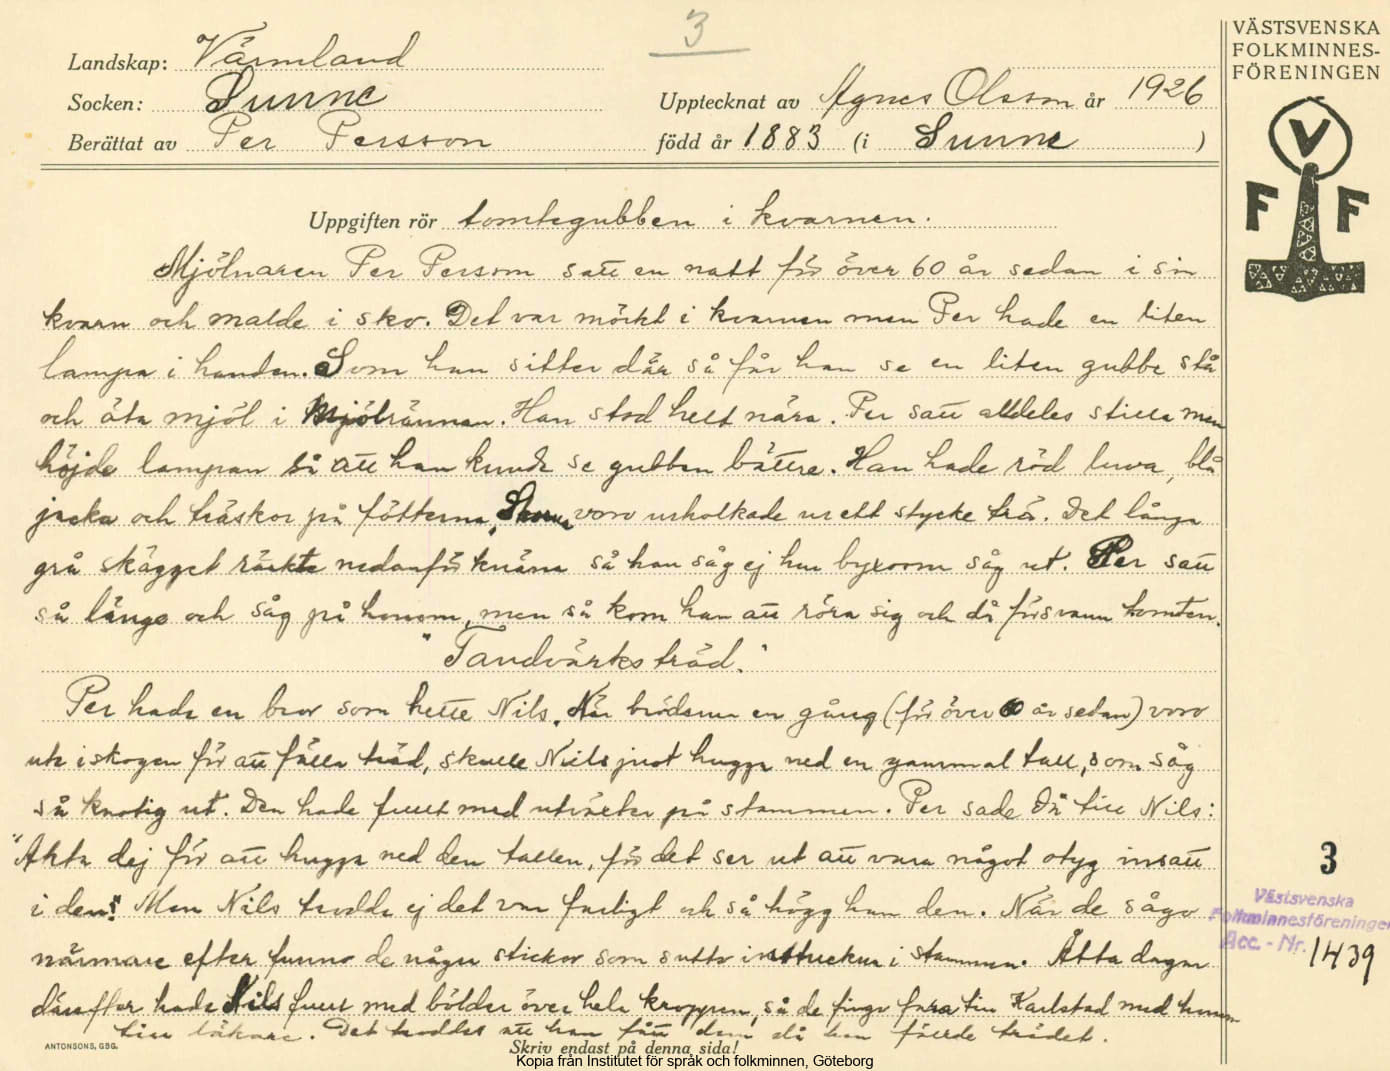 3
VÄSTSVENSKA
FOLKMINNES-
FÖRENINGEN
V
F F
Landskap: Värmland
Socken: Sunne
Upptecknat av Agnes Olsson år 1926
Berättat av Per Persson
född år 1883 (i Sunne )
Uppgiften rör tomtegubben i kvarnen.
Mjölnaren Per Person satt en natt för över 60 år sedan i sin
kvarn och malde i sko. Det var mörkt i kvarnen men Per hade en liten
lampa i handen. Som han sitter där så får han se en liten gubbe stå
och äta mjöl i Mjölrännan. Han stod helt nära. Per satt alldeles stilla men
höjde lampan så att han kunde se gubben bättre. Han hade röd luva, blå
jacka och träskor på fötterna, Skorna voro urholkade ur ett stycke trä. Det långa
grå skägget räckte nedanför knäna så han såg ej hur byxorna såg ut. Per satt
så länge och såg på honom, men så kom han att röra sig och då försvann tomten.
"Tandvärksträd."
Per hade en bror som hette Nils. När bröderna en gång (för över 60 år sedan) voro
ute i skogen för att fälla träd, skulle Nils just hugga ned en gammal tall, som såg
så knotig ut. Den hade fullt med utväxter på stammen. Per sade då till Nils:
"Akta dej för att hugga ned den tallen, för det ser ut att vara något otyg insatt
i den!" Men Nils trodde ej det var farligt och så högg han den. När de sågo
närmare efter funno de några stickor som sutto instuckna i stammen. Åtta dagar
därefter hade Nils fullt med bölder över hela kroppen, så de fingo fara till Karlstad med honom
till läkare. Det troddes att han fått dem då han fällde trädet.
3
Västsvenska
Folkminnesföreningen
Acc.-Nr. 1439
ANTONSONS, GBG.
Skriv endast på denna sida!
Kopia från Institutet för språk och folkminnen, Göteborg